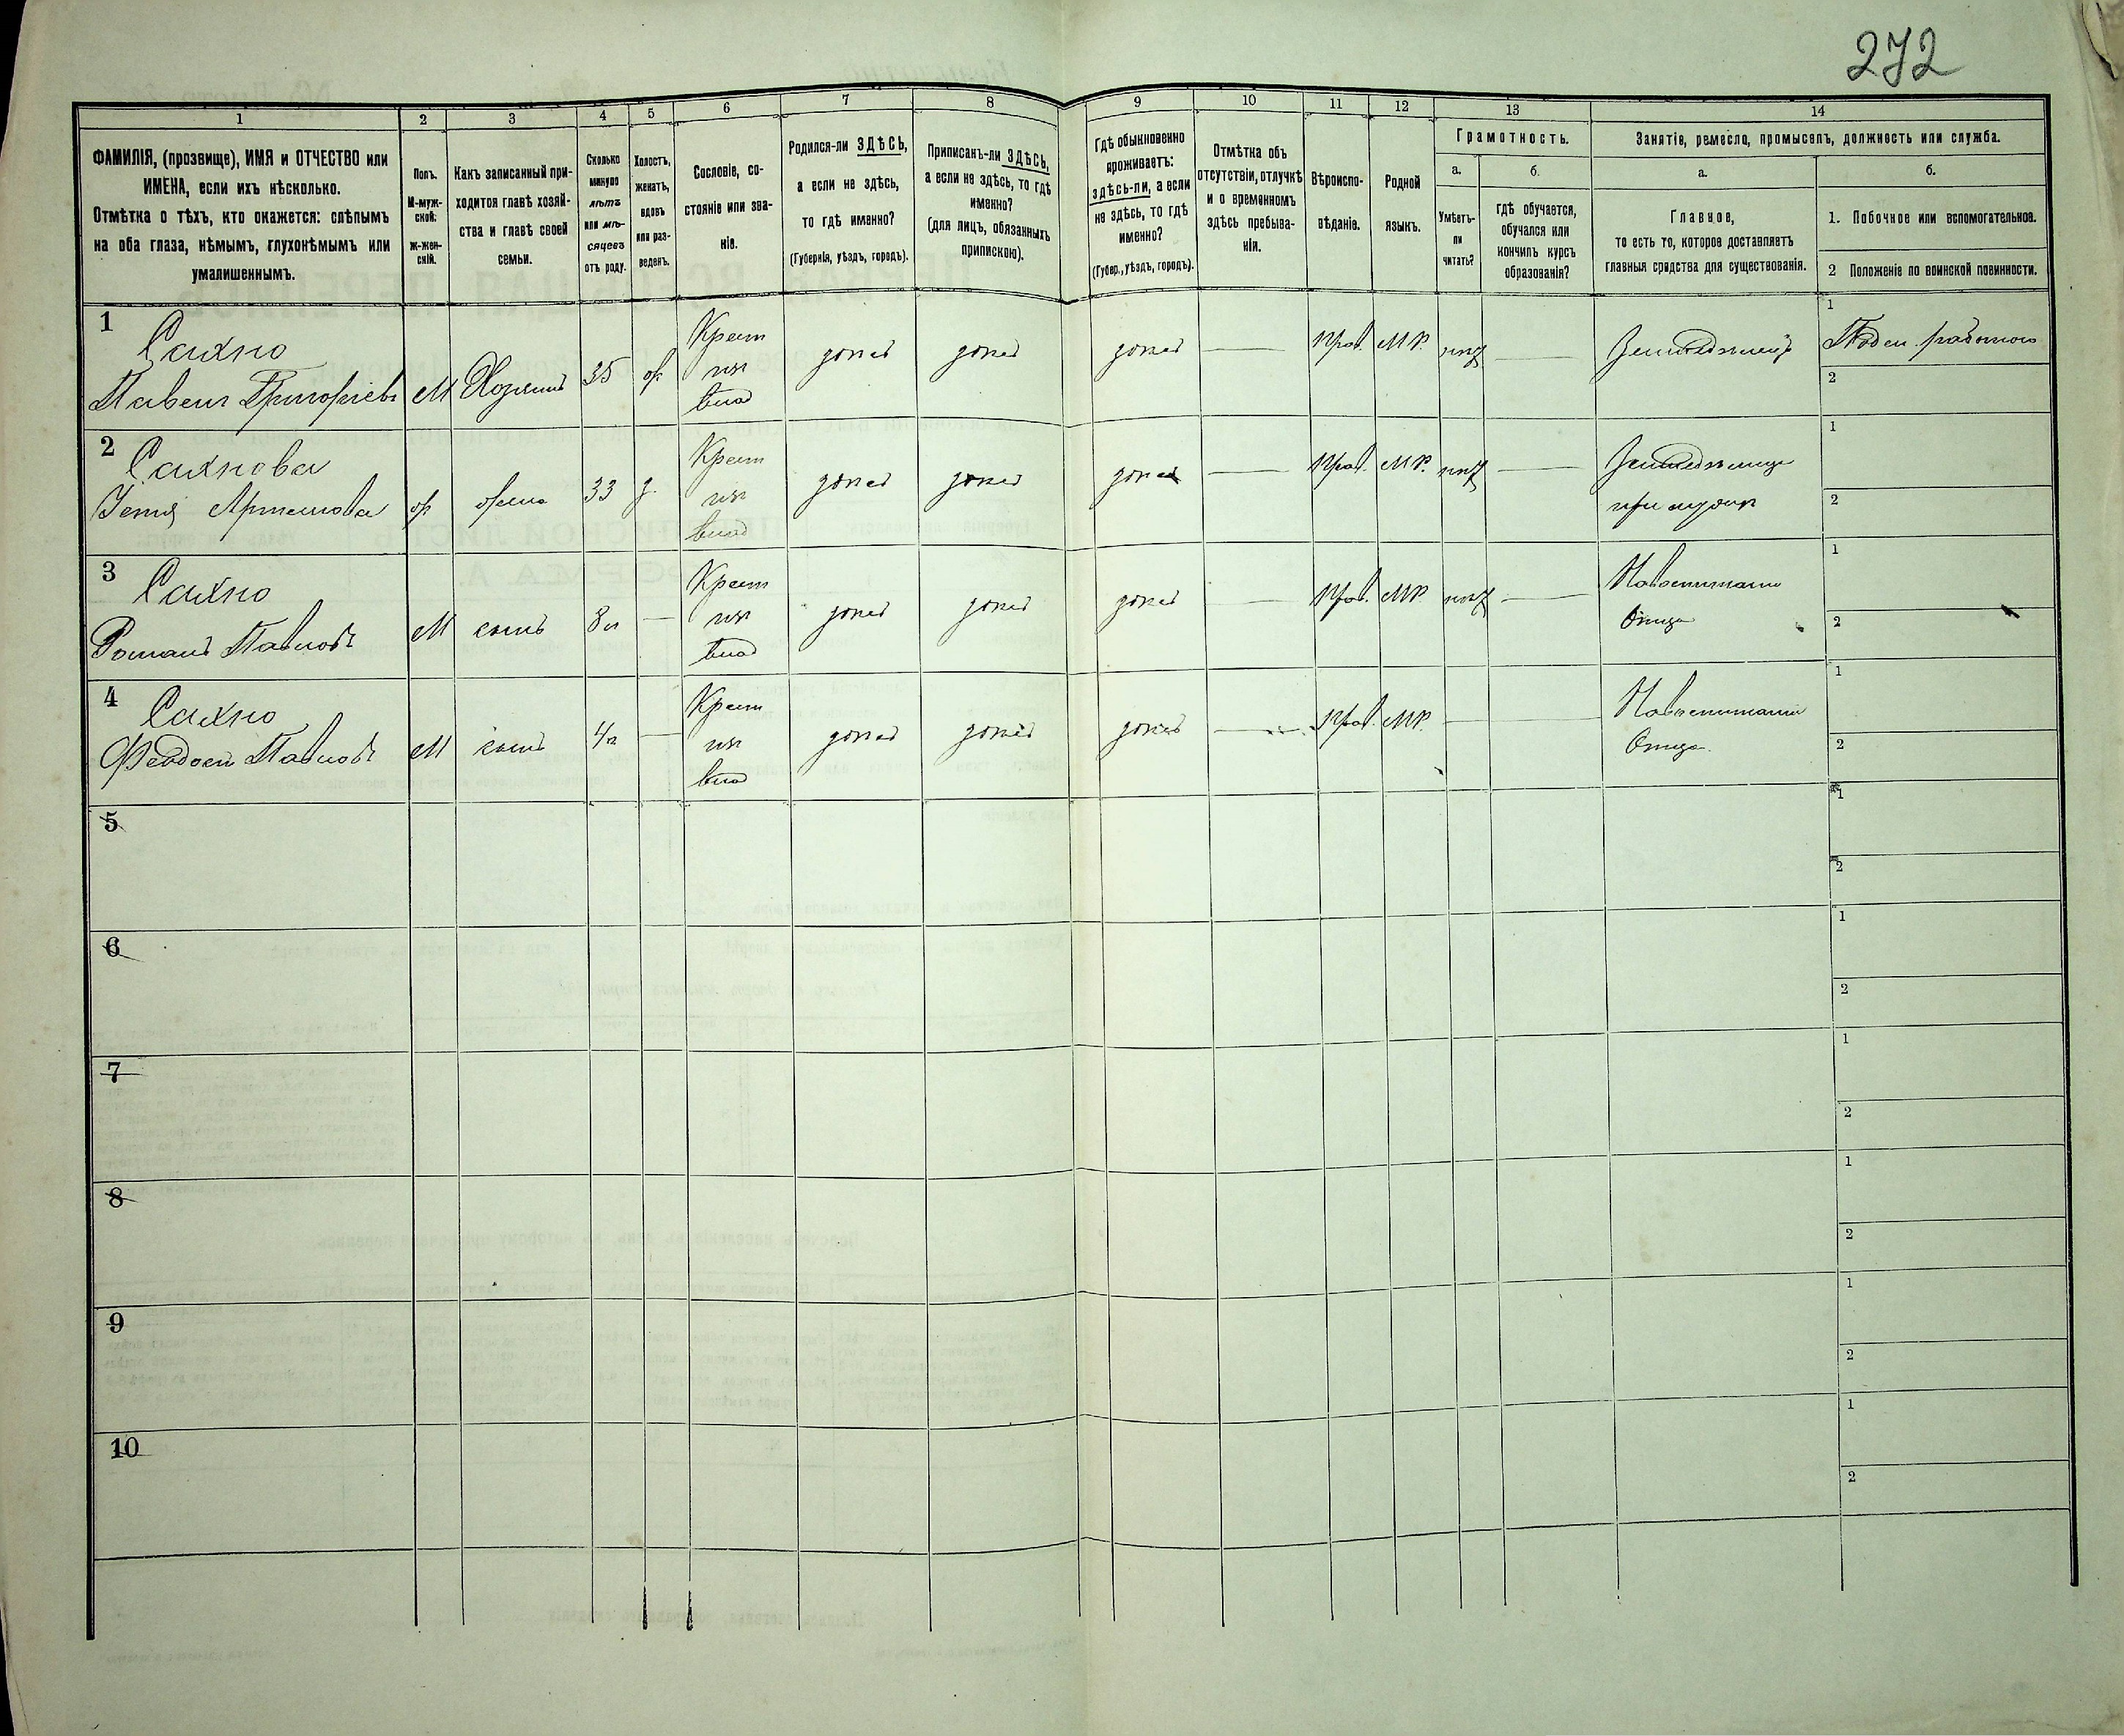 272
1 2 3 4 5 6 7 8 9 10 11 12 13 14
ФАМИЛІЯ, (прозвище), ИМЯ и ОТЧЕСТВО или
ИМЕНА, если ихъ нѣсколько.
Отмѣтка о тѣхъ, кто окажется: слѣпымъ
на оба глаза, нѣмымъ, глухонѣмымъ или
умалишеннымъ.
Полъ.
М-муж-
ской;
ж-жен-
скій.
Какъ записанный при-
ходится главѣ хозяй-
ства и главѣ своей
семьи.
Сколько
минуло
лѣтъ
или мѣ-
сяцевъ
отъ роду.
Холостъ,
женатъ,
вдовъ
или раз-
веденъ.
Сословіе, со-
стояніе или зва-
ніе.
Родился-ли ЗДѢСЬ,
а если не здѣсь,
то гдѣ именно?
(Губернія, уѣздъ, городъ).
Приписанъ-ли ЗДѢСЬ,
а если не здѣсь, то гдѣ
именно?
(для лицъ, обязанныхъ
припискою).
Гдѣ обыкновенно
проживаетъ:
здѣсь-ли, а если
не здѣсь, то гдѣ
именно?
(Губер., уѣздъ, городъ).
Отмѣтка объ
отсутствіи, отлучкѣ
и о временномъ
здѣсь пребыва-
ніи.
Вѣроиспо-
вѣданіе.
Родной
языкъ.
Грамотность.
а.
Умѣетъ-
ли
читать?
б.
гдѣ обучается,
обучался или
кончилъ курсъ
образованія?
Занятіе, ремесло, промыселъ, должность или служба.
а.
Главное,
то есть то, которое доставляетъ
главныя средства для существованія.
б.
1. Побочное или вспомогательное.
2 Положеніе по воинской повинности.
1 Сахно
Павелъ Григорьевъ
М
Хозяинъ
35
ж
Крест
изъ
влад
здѣсь
здѣсь
здѣсь
Прав.
М.Р.
нѣтъ
Земледѣлецъ
1
2
2 Сахнова
Артемова
ж
жена
33
з.
Крест
изъ
влад
здѣсь
здѣсь
здѣсь
Прав.
М.Р.
нѣтъ
Земледѣлица
при мужѣ
1
2
3 Сахно
Романъ Павловъ
М
сынъ
8 л
Крест
изъ
влад
здѣсь
здѣсь
здѣсь
Прав.
М.Р.
нѣтъ
На воспитаніи
Отца
1
2
4 Сахно
Феодосій Павловъ
М
сынъ
Крест
изъ
влад
здѣсь
здѣсь
здѣсь
Прав.
М.Р.
На воспитаніи
Отца.
1
2
5
1
2
6
1
2
7
1
2
8
1
2
9
1
2
10
1
2